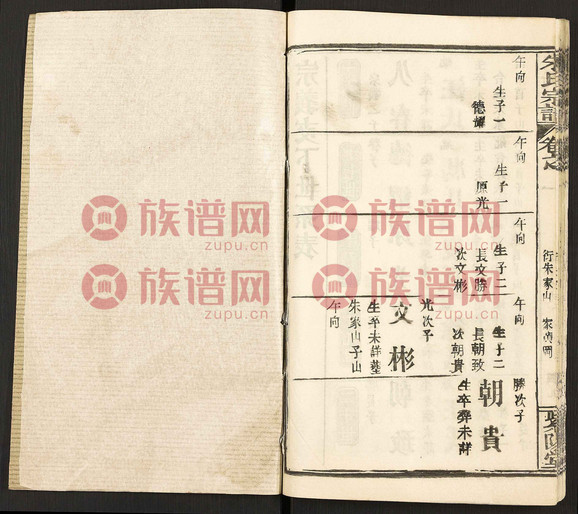 朱氏宗譜
卷之
衍朱家山
家黄岡
紫陽堂
午向
生子一
德耀
午向
生子一
原光
午向
生子二
長文勝
次文彬
午向
生子二
長朝致
次朝貴
光次子
文彬
生卒未詳墓
朱家山子山
午向
勝次子
朝貴
生卒葬未詳
族谱网
zupu.cn
族谱网
zupu.cn
族谱网
zupu.cn
族谱网
zupu.cn